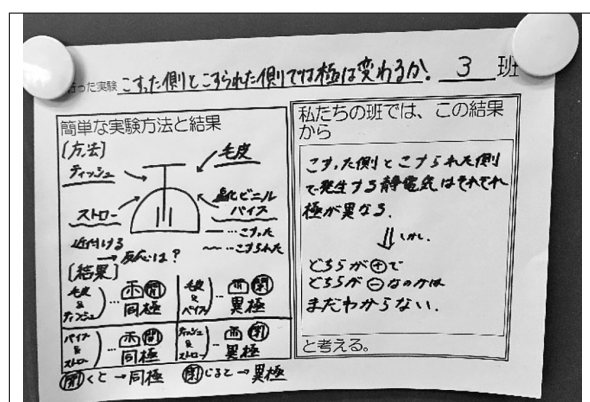 行った実験 こすった側とこすられた側では極は変わるか? 3 班
簡単な実験方法と結果
[方法]
ティッシュ
毛皮
ストロー
塩化ビニル
パイプ
…こすった
…こすられた
近付ける
→ 反応は?
[結果]
毛皮
&
ティッシュ
… 開
同極
毛皮
&
パイプ
… 閉
異極
パイプ
&
ストロー
…
同極
ティッシュ
&
ストロー
… 閉
異極
開くと→同極 閉じると→異極
私たちの班では、この結果
から
こすった側とこすられた側
で発生する静電気はそれぞれ
極が異なる.
⇓ しかし.
どちらが⊕で
どちらが⊖なのかは
まだわからない.
と考える。